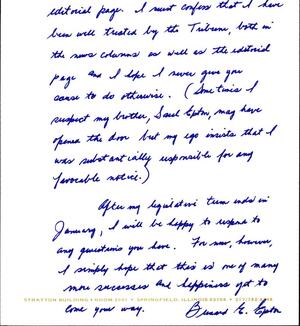 editorial page. I must confess that I have
been well treated by the Tribune, both in
the news columns as well as the editorial
page and I hope I never give you
cause to do otherwise. (Sometimes I
suspect my brother, Saul Epton, may have
opened the door but my ego insists that I
was substantially responsible for any
favorable notice.)
After my legislative term ends in
January, I will be happy to respond to
any questions you have. For now, however,
I simply hope that this is one of many
more successes and happiness yet to
come your way.
Bernard E. Epton
STRATTON BUILDING • ROOM 2001 • SPRINGFIELD, ILLINOIS 62706 •